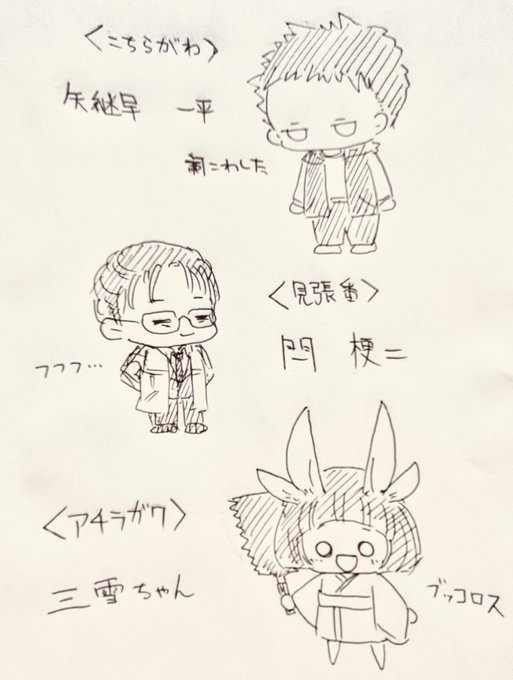 〈こちらがわ〉
矢継早 一平
祠こわした
〈見張番〉
閂 梗二
フフフ…
〈アチラガワ〉
三雪ちゃん
ブッコロス